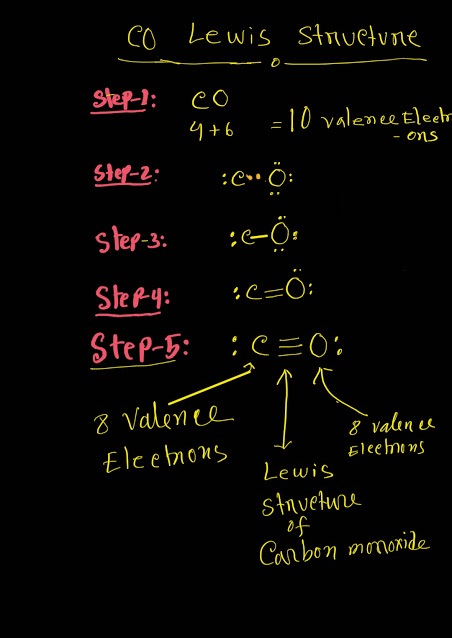 CO Lewis Structure
Step-1: CO
4+6 = 10 valence Electr
-ons
Step-2: :C··Ö:
Step-3: :C–Ö:
Step-4: :C=Ö:
Step-5: :C≡O:
8 Valence
Electrons
8 valence
Electrons
Lewis
structure
of
Carbon monoxide